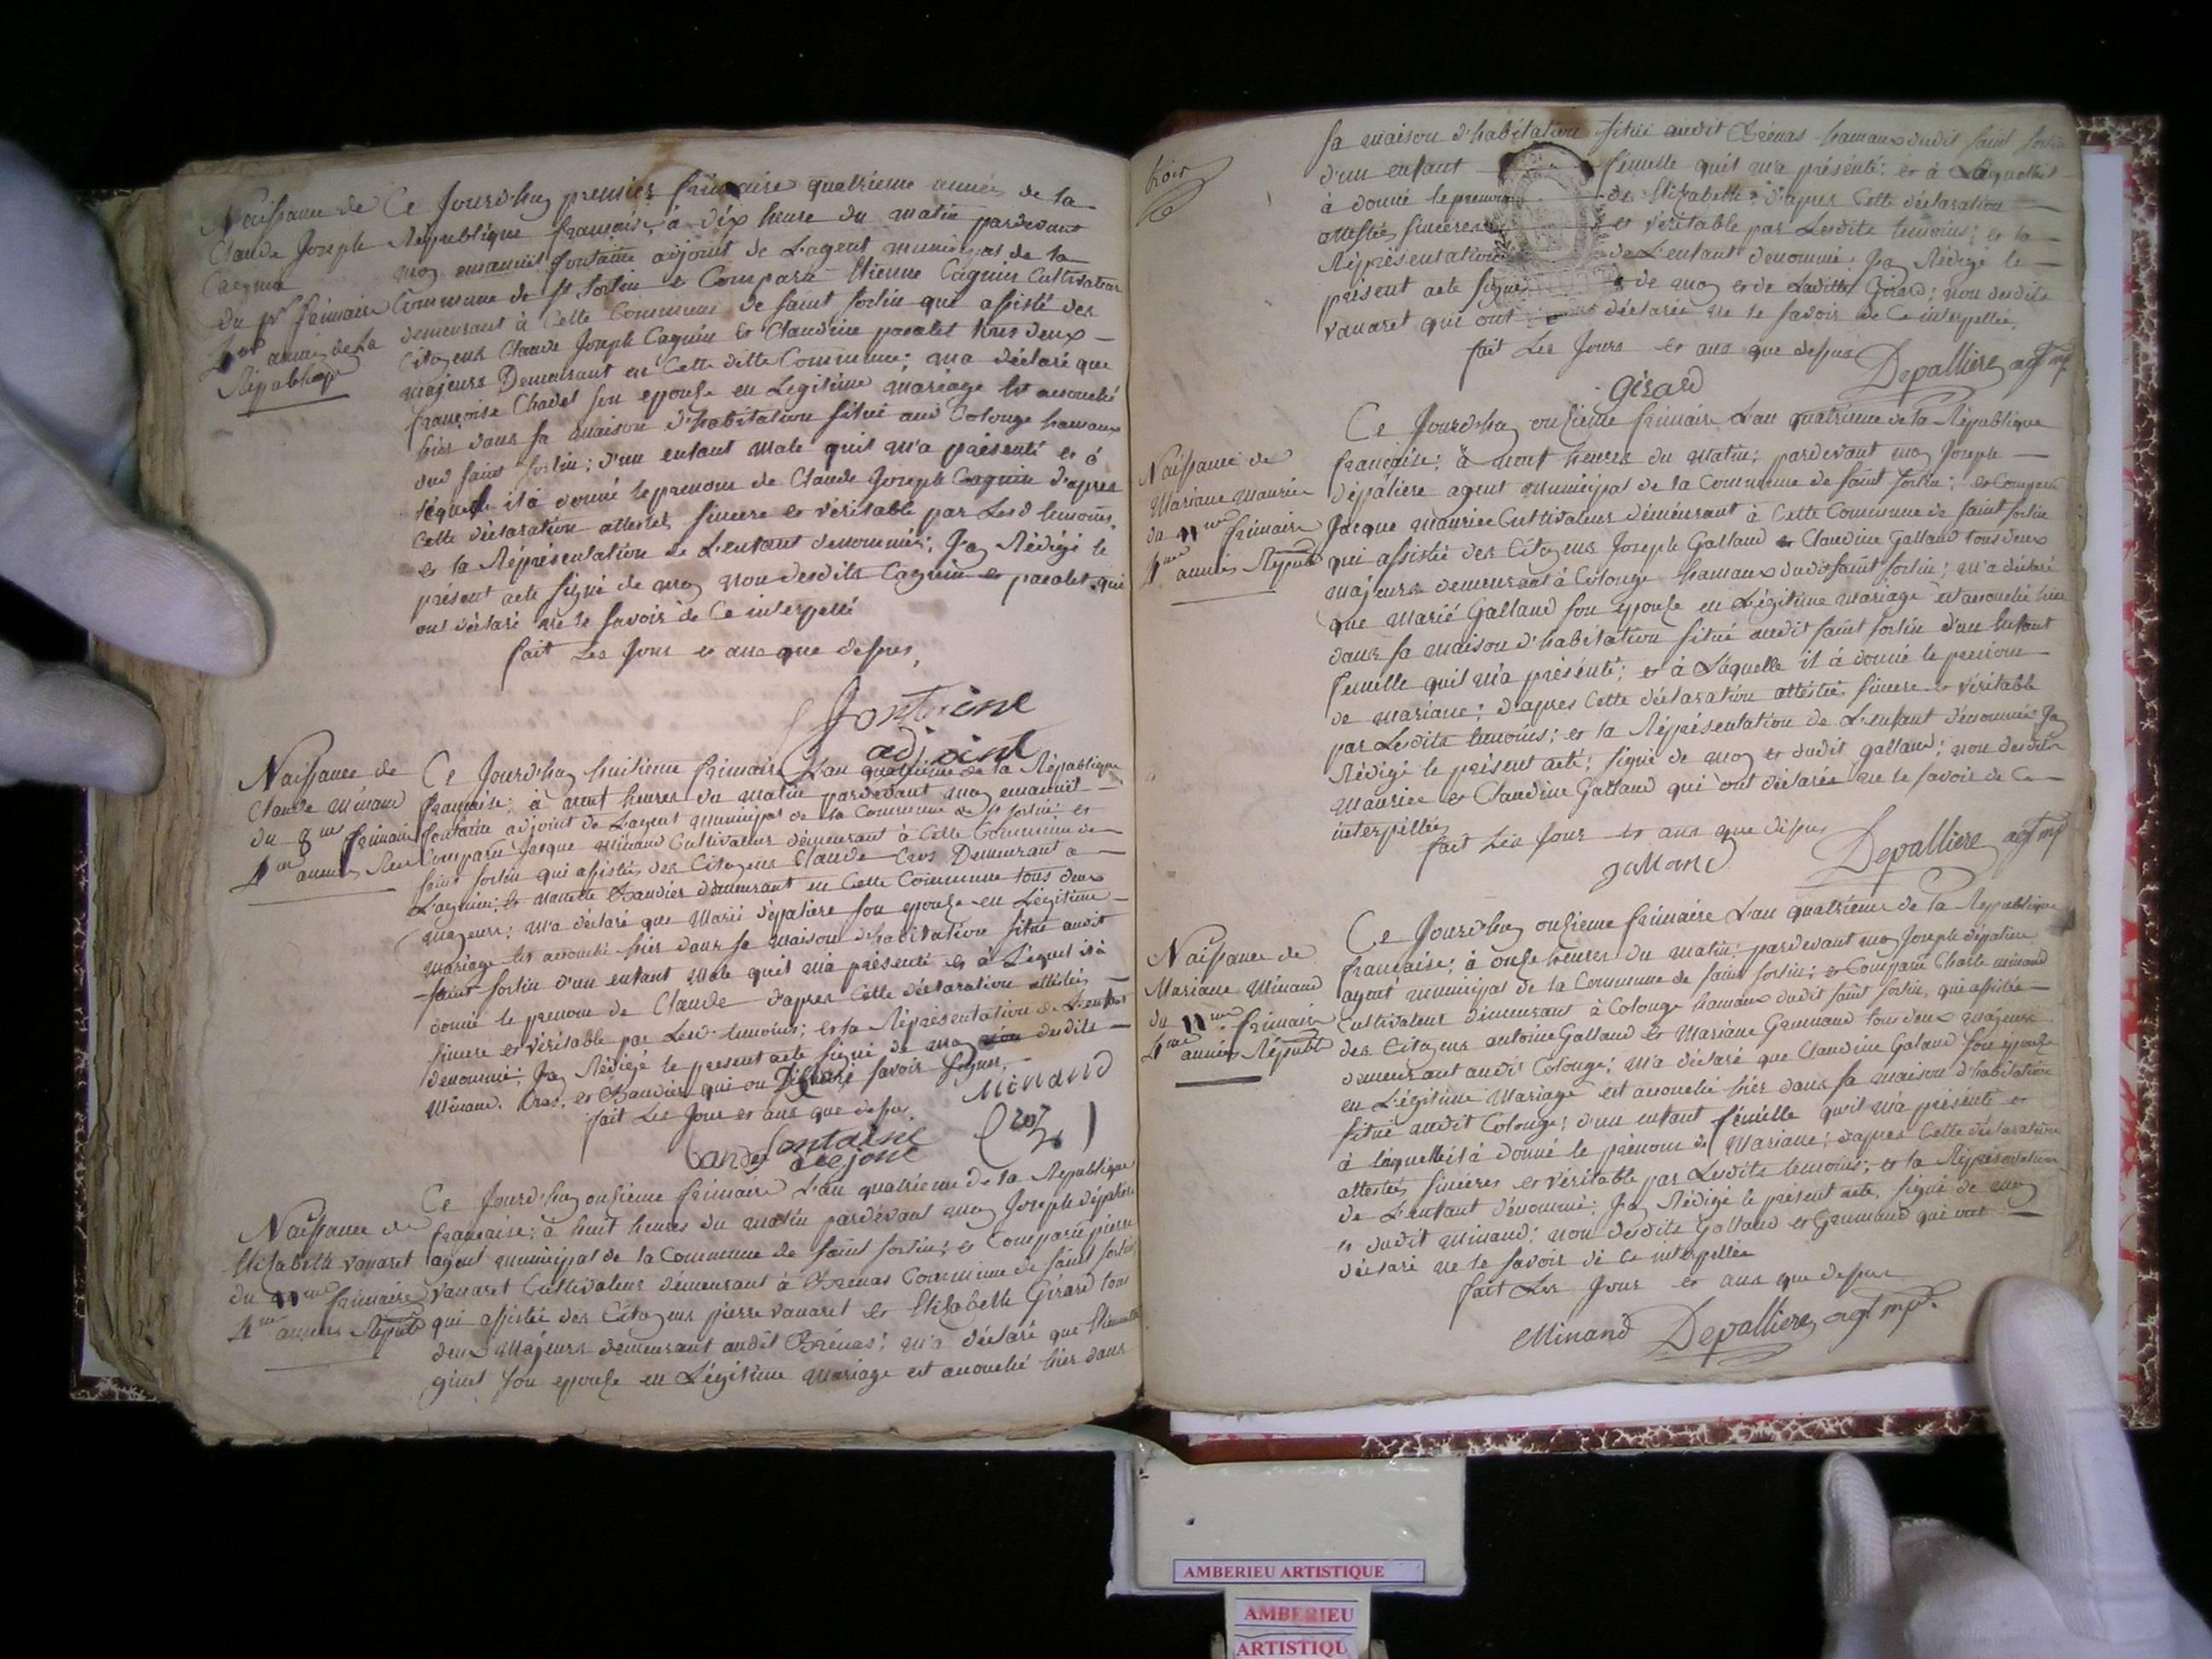 Naissance de
Claude Joseph
Cagnin
du pr frimaire
4me année de la
République
Ce Jourd'huy premier frimaire quatrieme année de la
République française, à dix heure du matin pardevant
moy emanuel fontaine adjoint de L'agent municipal de la
Commune de st sorlin et Comparu Etienne Cagnin Cultivateur
demeurant à Cette Commune de saint sorlin qui assisté des
Citoyens Claude Joseph Cagnin et Claudine pacalet tous deux
majeurs Demeurant en Cette ditte Commune; m'a déclaré que
françoise Chadel son epouse en Legitime mariage est accouché
hier dans sa maison d'habitation situé aud Colonge hamaux
dud saint sorlin; d'un enfant male quil m'a présenté et à
Lequelle il à donné le prenom de Claude Joseph Cagnin d'apres
Cette déclaration attestée, sincere et véritable par Lesd temoins,
et la Représentation de L'enfant denommé; J'ay Rédigé le
présent acte signé de moy non desdits Cagnin et pacalet qui
ont déclaré ne le savoir de Ce interpellé
fait Les Jour et ans que dessus,
fontaine
adjoint
Naissance de
Claude Minand
du 8me frimaire
4me année Rep
Ce Jourd'huy huitieme frimaire L'an quatrieme de la République
française; à neuf heures du matin pardevant moy emanuel
fontaine adjoint de L'agent municipal de la Commune de st sorlin; et
Comparu Jacque Minand Cultivateur demeurant à Cette Commune de
saint sorlin qui assistée des Citoyens Claude Cros Demeurant a
Lagnieu; et nanette Baudier demeurant en Cette Commune tous deux
majeurs; m'a déclaré que Marie dépaliere son epouse en Légitime
mariage est accouché hier dans sa maison d'habitation situé audit
saint sorlin d'un enfant male quil m'a présenté et à Lequel il à
donné le prenom de Claude d'apres Cette déclaration attestée
sincere et véritable par Lesd temoins; et la Représentation de L'enfant
denommé; J'ay Rédigé le present acte signé de moy desdits
Minand, Cros, et Baudier qui on déclaré savoir signer,
fait Les Jour et ans que dessus,
Minand
fontaine
adejoint
Naissance de
Elisabeth vanaret
du 11me frimaire
4me année Répub
Ce Jourd'huy onsieme frimaire L'an quatrieme de la République
française; à huit heures du matin pardevant moy Joseph dépaliere
agent municipal de la Commune de saint sorlin; et Comparu pierre
vanaret Cultivateur démeurant à Brénas Commune de saint sorlin
qui assistée des Citoyens pierre vanaret et Elisabeth Gérard tous
deux majeurs demeurant audit Brénas; m'a déclaré que
son epouse en Légitime mariage est accouché hier dans
trois
sa maison d'habitation situé audit Brénas hamaux dudit saint sorlin
d'un enfant femelle quil m'a présenté: et à Laquelle il
à donné le prenom de Elisabeth; d'apres Cette déclaration
attestée sincere et véritable par Lesdits temoins; et la
Répresentation de L'enfant denommé; J'ay Rédigé le
présent acte signé de moy et de Laditte Gérard; non desdits
vanaret qui ont déclarée ne le savoir de Ce interpellée,
fait Les Jours et ans que dessus
Gérard
Depalliere agt mpl
Naissance de
Mariane Maurice
du 11me frimaire
4me année Républ
Ce Jourd'huy onsieme frimaire L'an quatrieme de la République
française; à neuf heures du matin; pardevant moy Joseph
dépaliere agent municipal de la Commune de saint sorlin; et Comparu
Jacque Maurice Cultivateur démeurant à Cette Commune de saint sorlin
qui assistée des Citoyens Joseph Galland et Claudine Galland tous deux
majeurs demeurant à Colonge hamaux dudit saint sorlin; m'a déclaré
que Marie Galland son epouse en Légitime mariage est accouché hier
dans sa maison d'habitation situé audit saint sorlin d'un enfant
femelle quil m'a présenté; et à Laquelle il à donné le prenom
de mariane; d'apres Cette déclaration attéstée sincere et véritable
par Lesdits temoins; et la Répésentation de L'enfant dénommée J'ay
Rédigé le présent acté; signé de moy et dudit galland; non desdits
Maurice et Claudine Galland qui ont déclarée ne le savoir de Ce
interpellée
fait Les Jour et ans que dessus
galland
Depalliere agt mpl
Naissance de
Mariane Minand
du 11me frimaire
4me année Républ
Ce Jourd'huy onsieme frimaire L'an quatrieme de la République
française; à onse heures du matin; pardevant moy Joseph dépaliere
agent municipal de la Commune de saint sorlin; et Comparu Charle minand
Cultivateur démeurant à Colonge hamaux dudit saint sorlin, qui assistée
des Citoyens antoine Galland et Mariane Grumand tous deux majeurs
demeurant audit Colonge; m'a déclaré que Claudine Galand son epouse
en Légitime Mariage est accouché hier dans sa maison d'habitation
situé audit Colonge; d'un enfant fémelle quil m'a présenté et
à Laquelle il à donné le prénom de Mariane; d'apres Cette déclaration
attestée, sincere et véritable par Lesdits temoins; et la Répresentation
de L'enfant dénommé; J'ay Rédigé le présent acte, signé de moy
et dudit Minand; non desdits Galland et Grumand qui ont
déclaré ne le savoir de Ce interpellée
fait Les Jours et ans que dessus
Minand Depalliere agt mpl
AMBERIEU ARTISTIQUE
AMBERIEU
ARTISTIQU